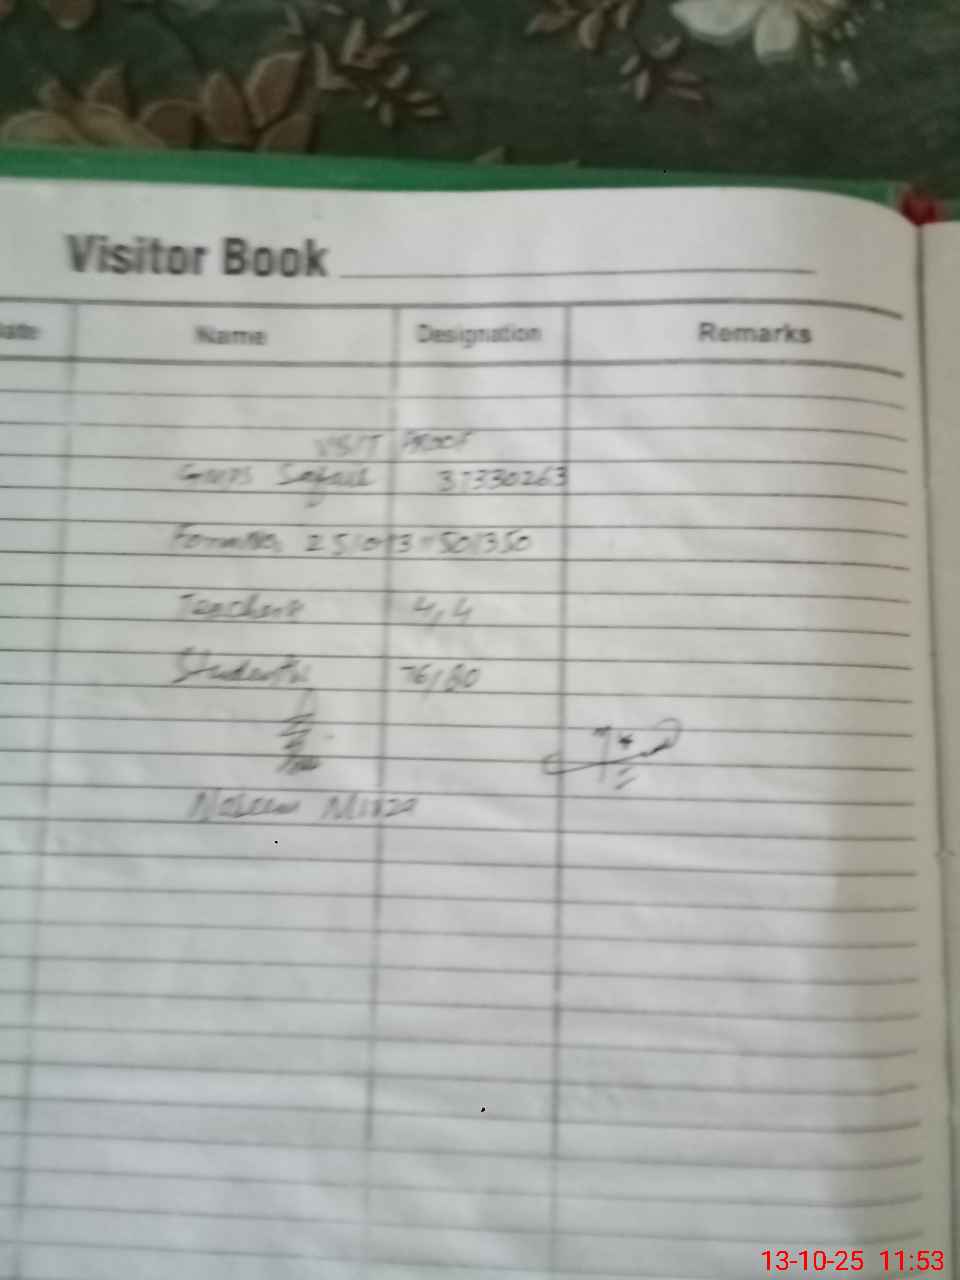 Visitor Book
Name Designation Remarks
VISIT PROOF
GGPS 37330263
Form No. 251013-501350
Teachers 4/4
Students 76/80
Naseem Mirza
13-10-25 11:53